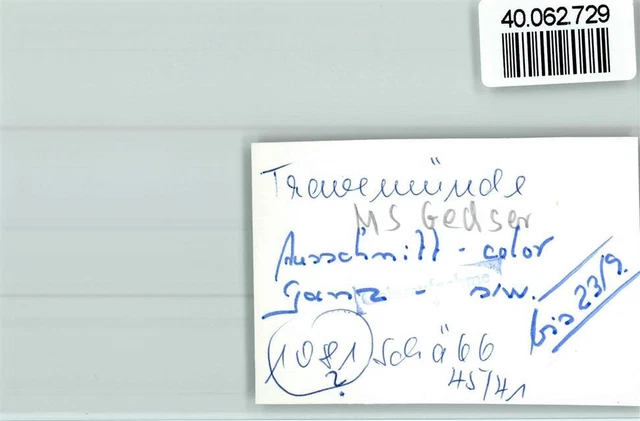 40.062.729
Travemünde
MS Gedser
Ausschnitt - color
Ganz - s/w.
bis 23/9.
1081 Schöbb
?
45/41